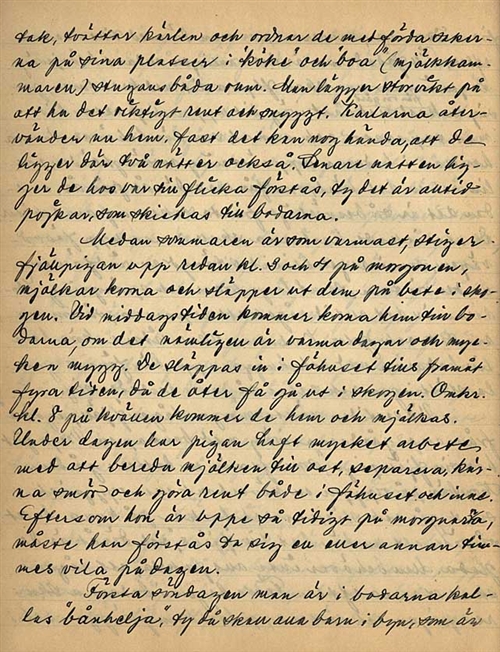 tak, tvättar kärlen och ordnar de medförda saker-
na på sina platser i "köke" och "boa" (mjölkkam-
maren) stugans båda rum. Man lägger stor vikt på
att ha det riktigt rent och snyggt. Karlarna åter-
vänder nu hem, fast det kan nog hända, att de
ligger där två nätter också. Senare natten lig-
ger de hos var sin flicka förstås, ty det är alltid
pojkar, som skickas till bodarna.
Medan sommaren är som varmast, stiger
fjällpigan upp redan kl. 3 och 4 på morgonen,
mjölkar korna och släpper ut dem på bete i sko-
gen. Vid middagstiden kommer korna hem till bo-
darna, om det nämligen är varma dagar och myc-
ken mygg. De släppas in i fähuset tills framåt
fyra tiden, då de åter få gå ut i skogen. Omkr.
kl. 8 på kvällen kommer de hem och mjölkas.
Under dagen har pigan haft mycket arbete
med att bereda mjölken till ost, separera, kär-
na smör och göra rent både i fähuset och inne.
Eftersom hon är uppe så tidigt på morgnarna,
måste hon förstås ta sig en eller annan tim-
mes vila på dagen.
Första söndagen man är i bodarna kal-
las "bånhelja", ty då skall alla barn i byn, som är